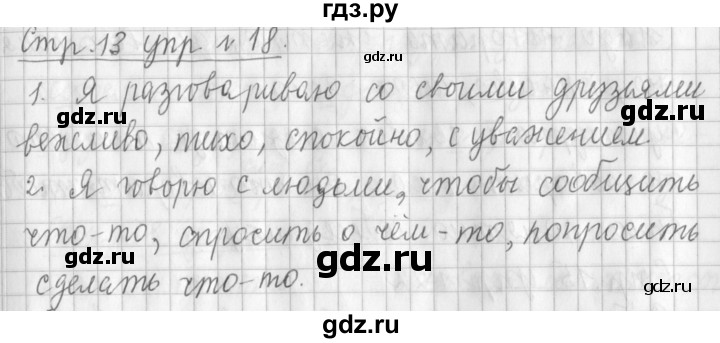 гдз.ру
Стр. 13 упр. № 18.
1. Я разговариваю со своими друзьями
gdz.ru gdz.ru gdz.ru
вежливо, тихо, спокойно, с уважением.
2. Я говорю с людьми, чтобы сообщить
gdz.ru gdz.ru
что-то, спросить о чём-то, попросить
gdz.ru gdz.ru
сделать что-то.
gdz.ru